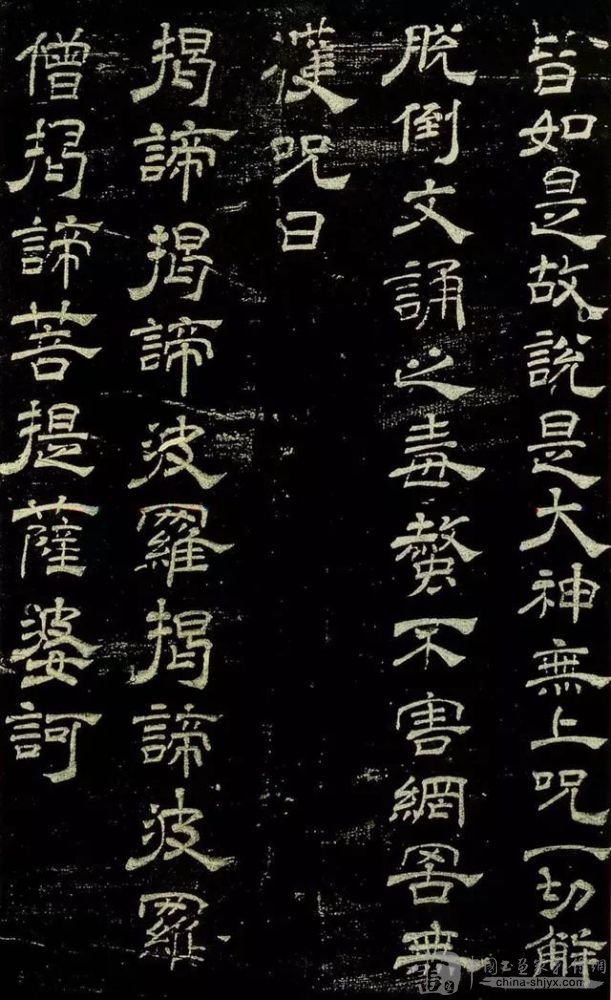 皆如是故說是大神無上呪一切解
脫倒文誦之毒螫不害網罟無
獲呪曰
揭諦揭諦波羅揭諦波羅
僧揭諦菩提薩婆訶
china-shjyx.com